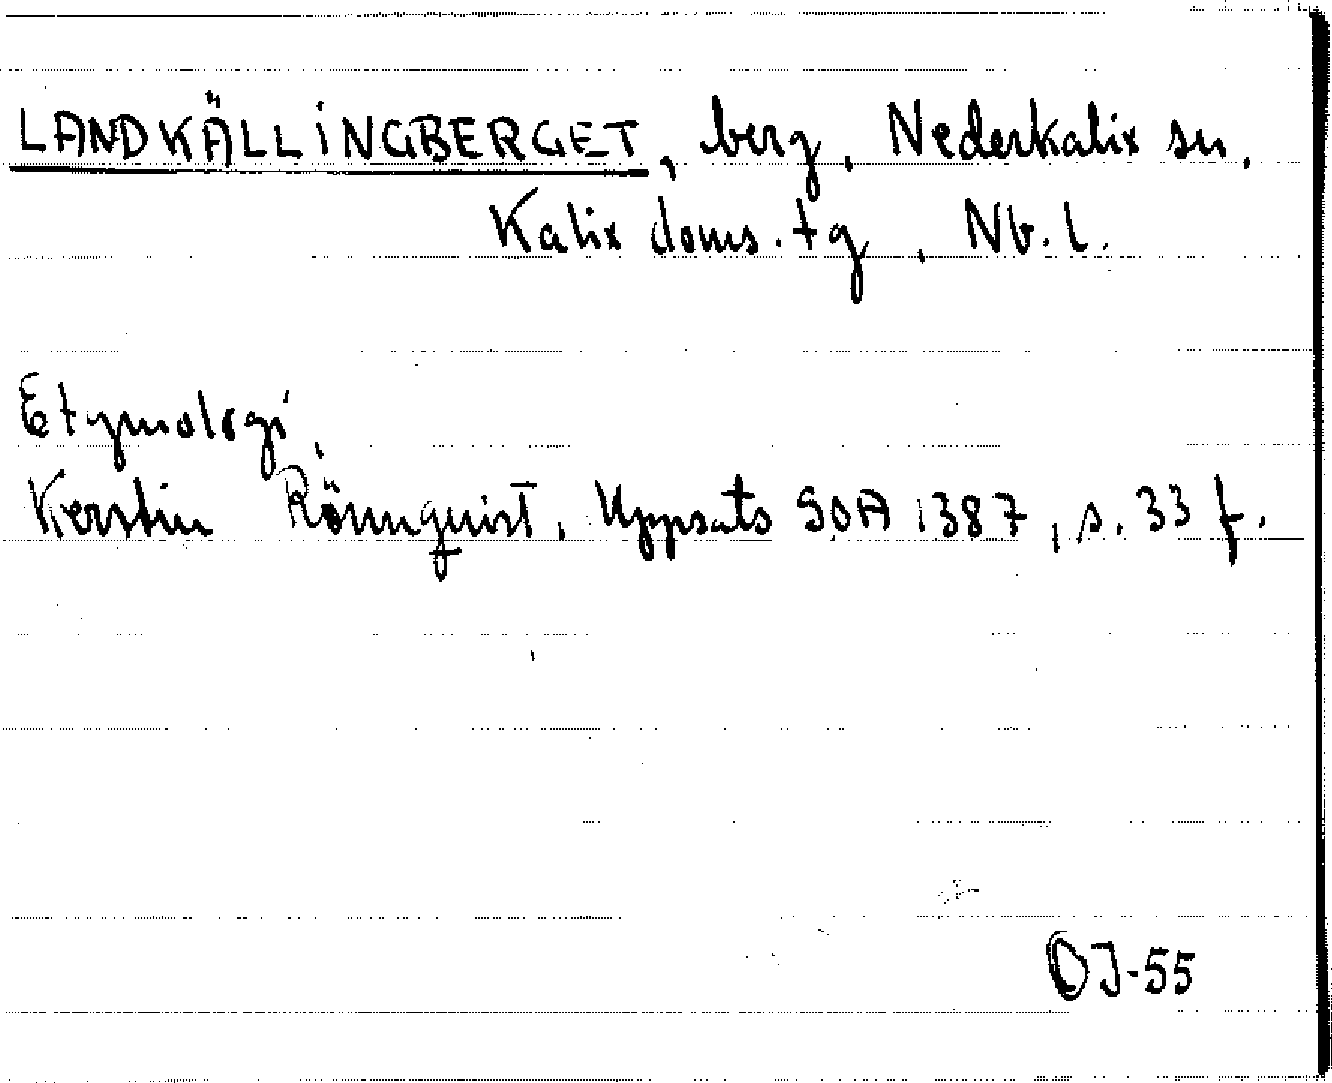 LANDKÄLLINGBERGET, berg, Nederkalix sn,
Kalix doms. tg, Nb. l.
Etymologi,
Kerstin Rönnquist, Uppsats SOA 1387, s. 33 f.
OJ-55